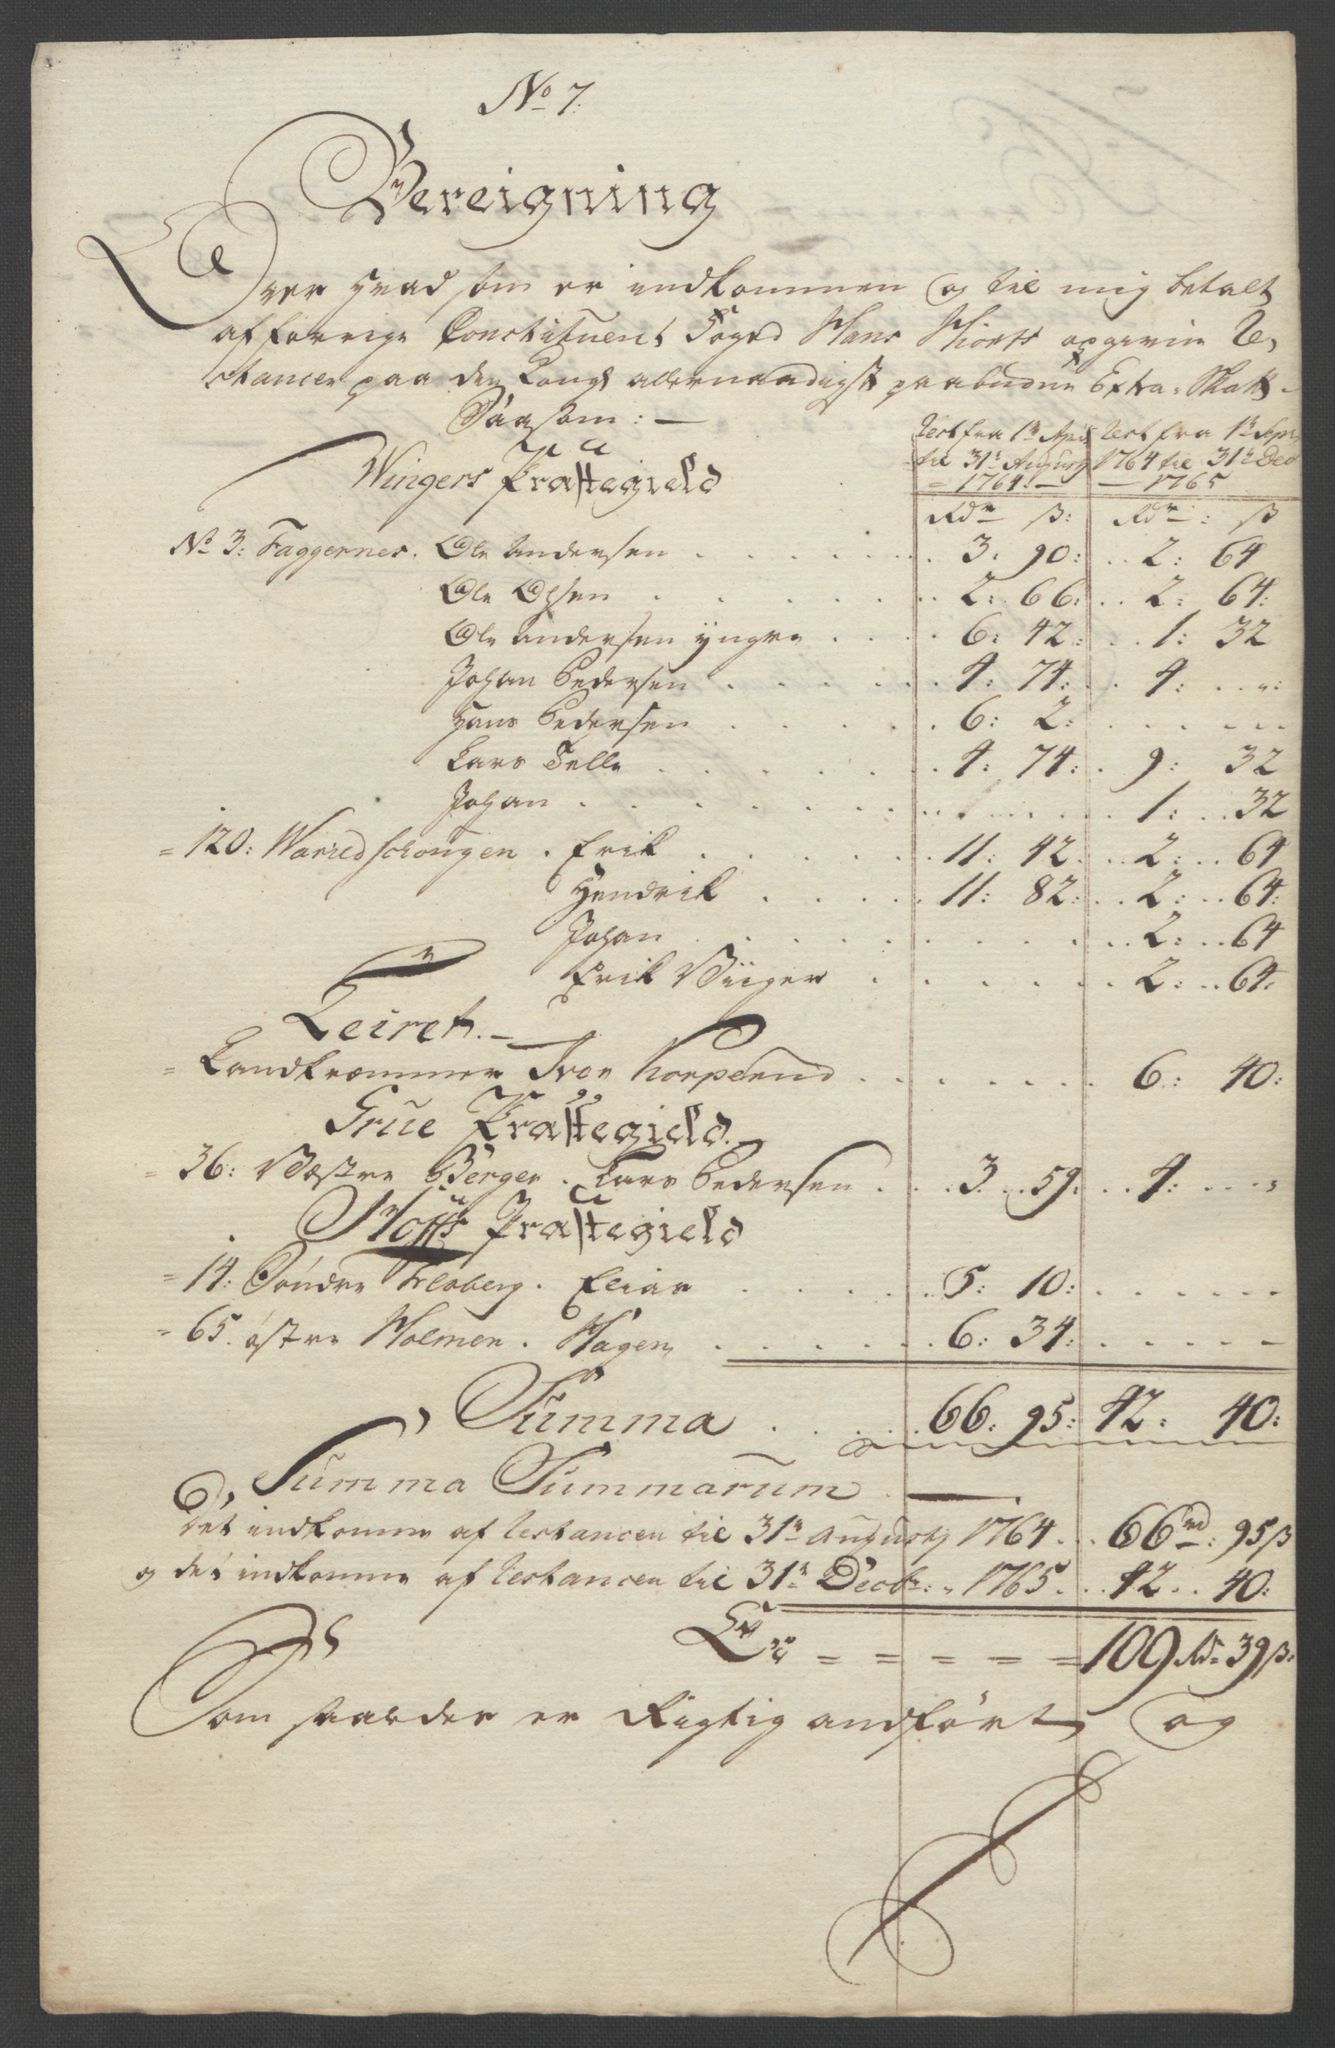 No 7.
Bereigning
Over hvad som er indkommen og til mig betalt
af forrige Constituent Foged Hans Hiorts opgivne Re-
stancer paa den Kongl allernaadigst paabudne Extra-Skatt -
Saasom: —
Rest fra 1te Apr. Rest fra 1te Apr.
til 31te Augustj 1764 til 31te Dec
= 1764: — — 1765
Wingers Præstegield
Rdr ß: Rdr: ß
No 3: Faggernes. Ole Andersen . . . 3: 90: . . 2: 64
Ole Olsen . . . 2: 66: . . 2: 64:
Ole Andersen yngre . . . 6: 42: . . 1: 32
Johan Pedersen . . . 4: 74: . . 4: . . „:
Hans Pedersen . . . 6: 2: . . .
Lars Telle . . . 4: 74: . . 9: 32
Johan . . . 1: . . 32
= 120: Warredschougen . Erik . . . 11: 42: . . 2: . . 64
Hendrik . . . 11: 82: . . 2: . . 64:
Johan . . . 2: . . 64
Erik Viiger . . . 2: . . 64:
Leiret. —
= Landkræmmer Iver Korperud . . . 6: 40:
Grue Præstegield.
= 36: Væstre Berger . Lars Pedersen . . . 3 . . 59: . . 4: . . „
Hoffs Præstegield
= 14: Søndre Floberg . Elias . . . 5: 10: . . .
= 65. østre Holmen . Hagen . . . 6: 34: . . .
Summa . . . 66: 95: 42: 40:
Summa Summarum . —
Det indkomne af Restancen til 31te Augustj 1764 . . 66rd: 95ß
og det indkomne af Restancen til 31te Decbr: 1765 . . 42 . . 40:
Er = = = = = 109 Rdr 39ß:
Som saaledes er Rigtig andført, og